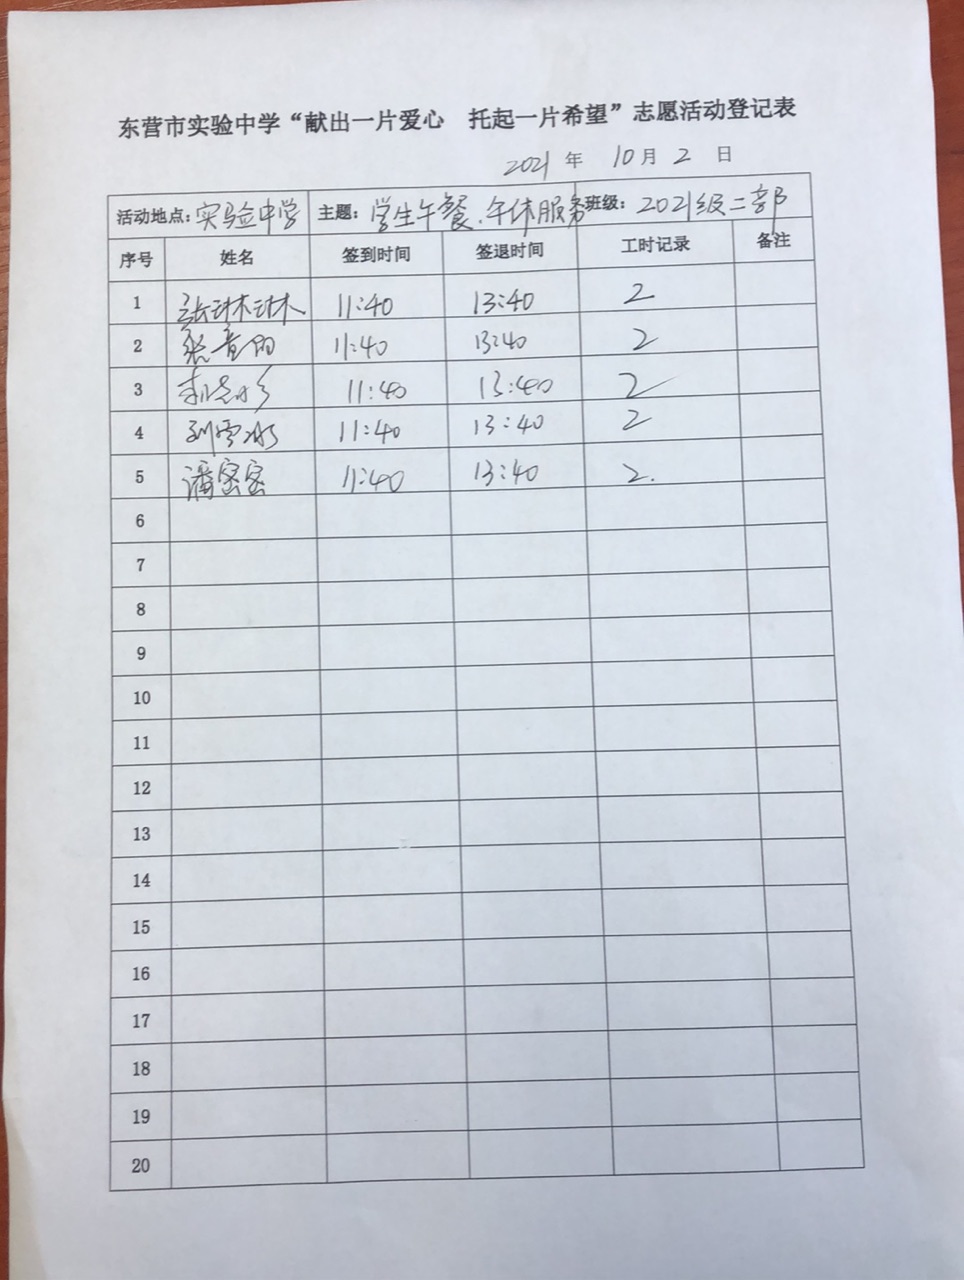 东营市实验中学“献出一片爱心 托起一片希望”志愿活动登记表
2021 年 10 月 2 日
活动地点: 实验中学 主题: 学生午餐、午休服务 班级: 2021级二部
序号 姓名 签到时间 签退时间 工时记录 备注
1 张琳琳 11:40 13:40 2
2 11:40 13:40 2
3 11:40 13:40 2
4 刘雪冰 11:40 13:40 2
5 潘密密 11:40 13:40 2.
6
7
8
9
10
11
12
13
14
15
16
17
18
19
20